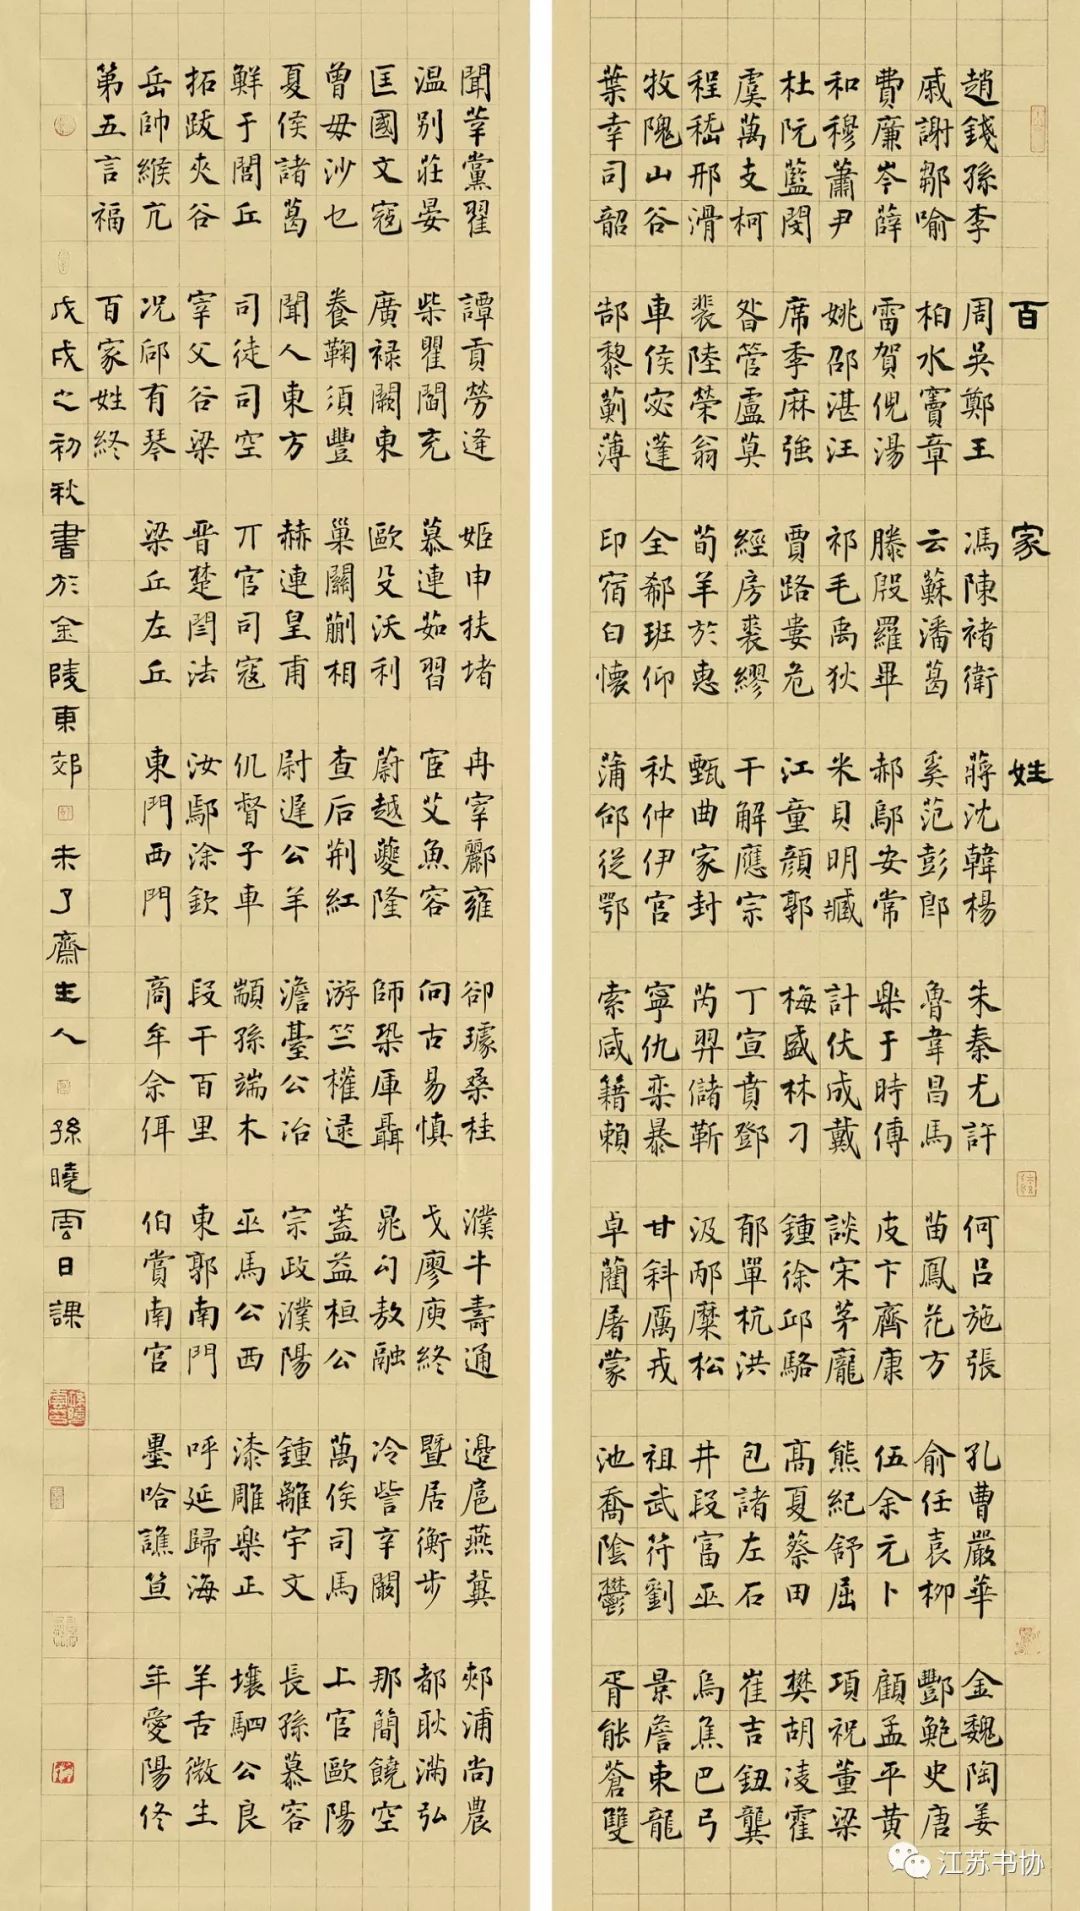 百家姓
趙錢孫李 周吳鄭王 馮陳褚衛 蔣沈韓楊 朱秦尤許 何呂施張 孔曹嚴華 金魏陶姜
戚謝鄒喻 柏水竇章 云蘇潘葛 奚范彭郎 魯韋昌馬 苗鳳花方 俞任袁柳 酆鮑史唐
費廉岑薛 雷賀倪湯 滕殷羅畢 郝鄔安常 樂于時傅 皮卞齊康 伍余元卜 顧孟平黃
和穆蕭尹 姚邵湛汪 祁毛禹狄 米貝明臧 計伏成戴 談宋茅龐 熊紀舒屈 項祝董梁
杜阮藍閔 席季麻強 賈路婁危 江童顏郭 梅盛林刁 鍾徐邱駱 高夏蔡田 樊胡凌霍
虞萬支柯 昝管盧莫 經房裘繆 干解應宗 丁宣賁鄧 郁單杭洪 包諸左石 崔吉鈕龔
程嵇邢滑 裴陸榮翁 荀羊於惠 甄曲家封 芮羿儲靳 汲邴糜松 井段富巫 烏焦巴弓
牧隗山谷 車侯宓蓬 全郗班仰 秋仲伊宮 寧仇欒暴 甘斜厲戎 祖武符劉 景詹束龍
葉幸司韶 郜黎薊薄 印宿白懷 蒲邰從鄂 索咸籍賴 卓藺屠蒙 池喬陰鬱 胥能蒼雙
聞莘黨翟 譚貢勞逄 姬申扶堵 冉宰酈雍 郤璩桑桂 濮牛壽通 邊扈燕冀 郟浦尚農
溫別莊晏 柴瞿閻充 慕連茹習 宦艾魚容 向古易慎 戈廖庾終 暨居衡步 都耿滿弘
匡國文寇 廣祿闕東 歐殳沃利 蔚越夔隆 師鞏厙聶 晁勾敖融 冷訾辛闞 那簡饒空
曾毋沙乜 養鞠須豐 巢關蒯相 查后荊紅 游竺權逯 蓋益桓公 萬俟司馬 上官歐陽
夏侯諸葛 聞人東方 赫連皇甫 尉遲公羊 澹臺公冶 宗政濮陽 鍾離宇文 長孫慕容
鮮于閭丘 司徒司空 丌官司寇 仉督子車 顓孫端木 巫馬公西 漆雕樂正 壤駟公良
拓跋夾谷 宰父谷梁 晉楚閆法 汝鄢涂欽 段干百里 東郭南門 呼延歸海 羊舌微生
岳帥緱亢 況郈有琴 梁丘左丘 東門西門 商牟佘佴 伯賞南宮 墨哈譙笪 年愛陽佟
第五言福 百家姓終
戊戌之初秋書於金陵東郊 未了齋主人 孫曉雲日課
江苏书协